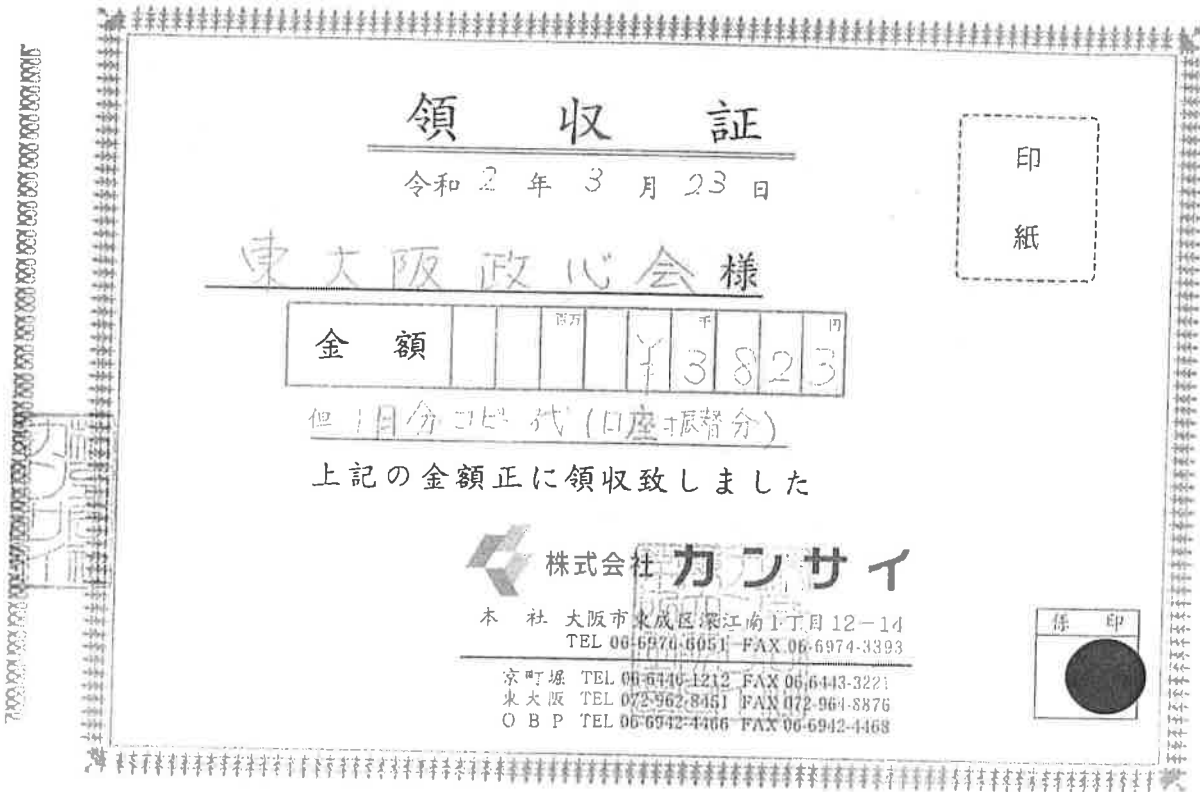 領収証
令和 2 年 3 月 23 日
印紙
東大阪政心会 様
金額 百万 千 円 ¥3823
但 1月分コピー代 (口座振替分)
上記の金額正に領収致しました
株式会社 カンサイ
本社 大阪市東成区深江南1丁目12-14
TEL 06-6976-6051 FAX 06-6974-3393
京町堀 TEL 06-6446-1212 FAX 06-6443-3221
東大阪 TEL 072-962-8451 FAX 072-964-8876
OBP TEL 06-6942-4466 FAX 06-6942-4468
係印